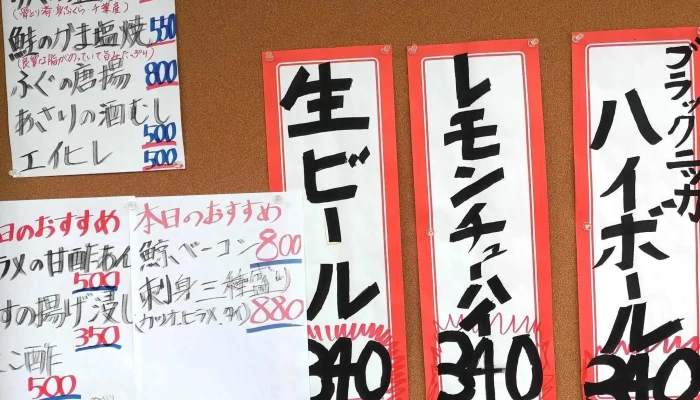 鮭のかま塩焼 550
(良質な脂がのっていて旨みたっぷり)
ふぐの唐揚 800
あさりの酒むし 500
エイヒレ 500
日のおすすめ
ラメの甘酢あん
500
すの揚げ浸し
350
こ酢
500
本日のおすすめ
鯨ベーコン 800
刺身三種盛り
(カツオ、ヒラメ、タイ) 880
生ビール
340
レモンチューハイ
340
ブラックニッカ
ハイボール
340